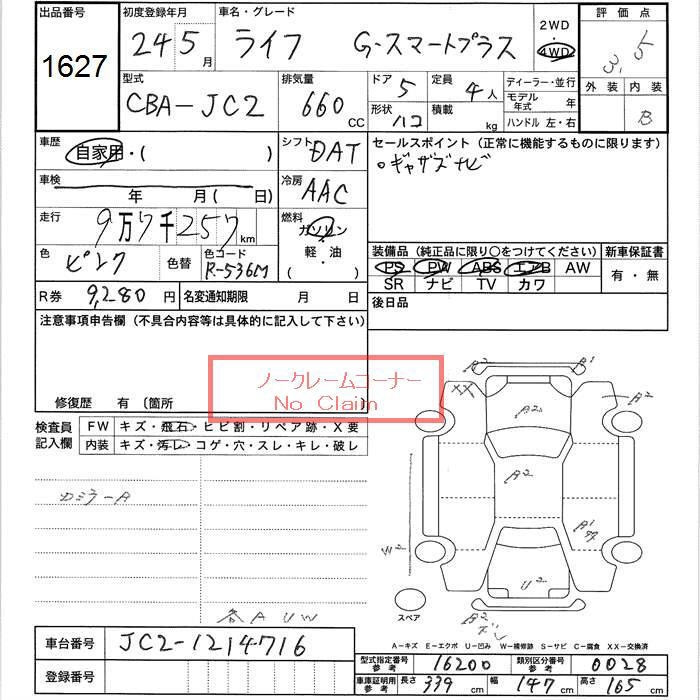 出品番号 1627
初度登録年月 24 5月
車名・グレード ライフ G-スマートプラス
2WD・4WD
評価点 3.5
型式 CBA-JC2
排気量 660 CC
ドア 5 形状 ハコ
定員 4人 積載 kg
ディーラー・並行
モデル年式 年
ハンドル 左・右
外装 内装 B
車歴 自家用・( )
シフト DAT
セールスポイント (正常に機能するものに限ります)
車検 年 月( 日)
冷房 AAC
走行 9万7千257km
燃料 ガソリン 軽・油 ( )
色 ピンク 色替 色コード R-536M
装備品 (純正品に限り〇をつけてください)
PS PW ABS エアB AW
SR ナビ TV カワ
新車保証書 有・無
R券 9,280円 名変通知期限 月 日
後日品
注意事項申告欄 (不具合内容等は具体的に記入して下さい)
ノークレームコーナー
No Claim
修復歴 有 〔箇所
検査員記入欄 FW キズ・飛石・ヒビ割・リペア跡・X要
内装 キズ・汚レ・コゲ・穴・スレ・キレ・破レ
A2 A1
A2 A2
A2
A1
W2
U2
スペア
A2
各AUW
A-キズ E-エクボ U-凹み W-補修跡 S-サビ C-腐食 XX-交換済
車台番号 JC2-1214716
登録番号
型式指定番号参考 16200 類別区分番号参考 0028
車庫証明用参考 長さ 339cm 幅 147cm 高さ 165cm